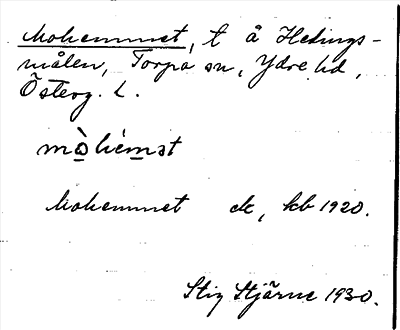 Mohemmet, t å Hetings-
målen, Torpa sn, Ydre hd,
Österg. l.
Mohemmet dc, kb 1920.
Stig Stjärne 1930.